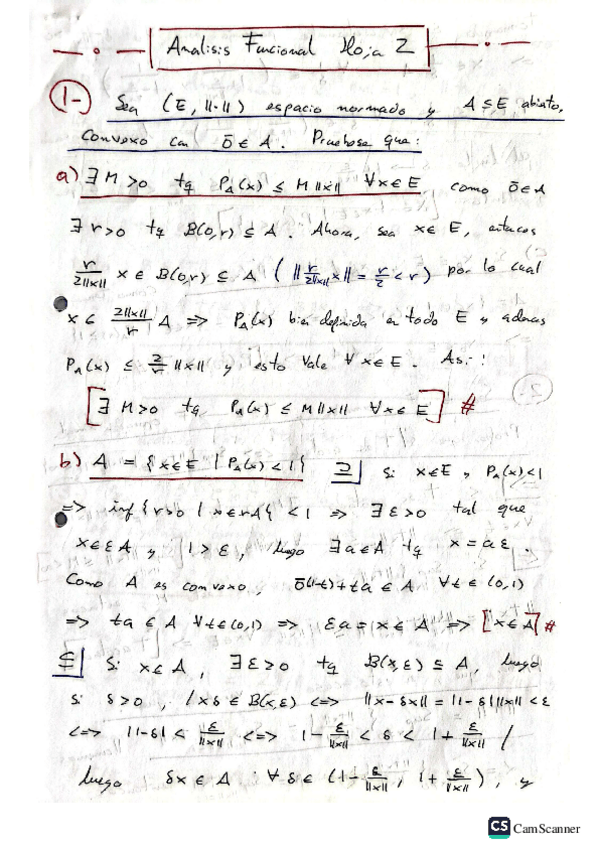 Analisis Funcional Hoja 2
1-) Sea (E, ||·||) espacio normado y A ⊆ E abierto,
convexo con ō ∈ A. Pruebese que:
a) ∃ M>0 tq P_A(x) ≤ M||x|| ∀x∈E como ō∈A
∃ r>0 tq B(0,r) ⊆ A. Ahora, sea x∈E, entonces
r/2||x|| x ∈ B(0,r) ⊆ A (||r/2||x|| x|| = r/2 < r) por lo cual
x ∈ 2||x||/r A => P_A(x) bien definida en todo E y ademas
P_A(x) ≤ 2/r ||x|| y esto vale ∀ x∈E. Asi:
[∃ M>0 tq P_A(x) ≤ M||x|| ∀x∈E] #
b) A = {x∈E | P_A(x) < 1} ⊇| Si x∈E y P_A(x)<1
=> inf{r>0 | x∈rA} < 1 => ∃ε>0 tal que
x∈εA y 1>ε, luego ∃a∈A tq x = aε.
Como A es convexo, ō(1-t)+ta ∈ A ∀t∈(0,1)
=> ta ∈ A ∀t∈(0,1) => εa = x ∈ A => [x∈A] #
⊆| Si x∈A, ∃ε>0 tq B(x,ε) ⊆ A, luego
si δ>0, / xδ ∈ B(x,ε) <=> ||x-δx|| = |1-δ|||x|| < ε
<=> |1-δ| < ε/||x|| <=> 1 - ε/||x|| < δ < 1 + ε/||x|| /
luego δx ∈ A ∀ δ ∈ (1 - ε/||x||, 1 + ε/||x||), y
CS CamScanner